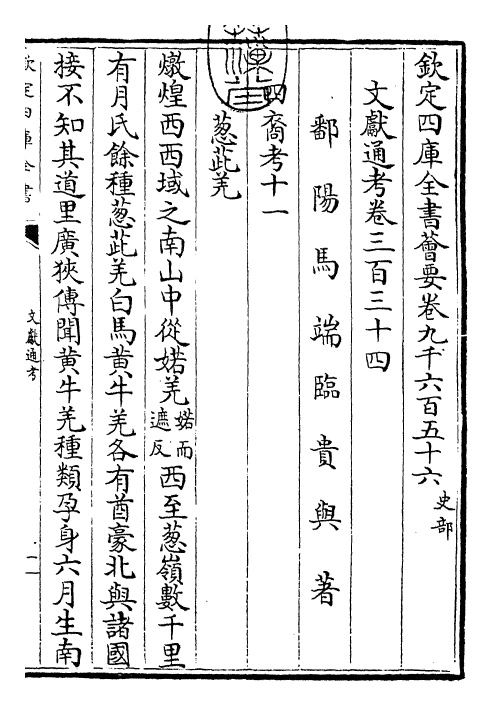 欽定四庫全書薈要卷九千六百五十六 史部
文獻通考卷三百三十四
鄱陽馬端臨貴與著
四裔考十一
葱茈羌
燉煌西西域之南山中從婼羌婼而遮反西至葱嶺數千里
有月氏餘種葱茈羌白馬黄牛羌各有酋豪北與諸國
接不知其道里廣狹傳聞黄牛羌種類孕身六月生南
欽定四庫全書
文獻通考
一